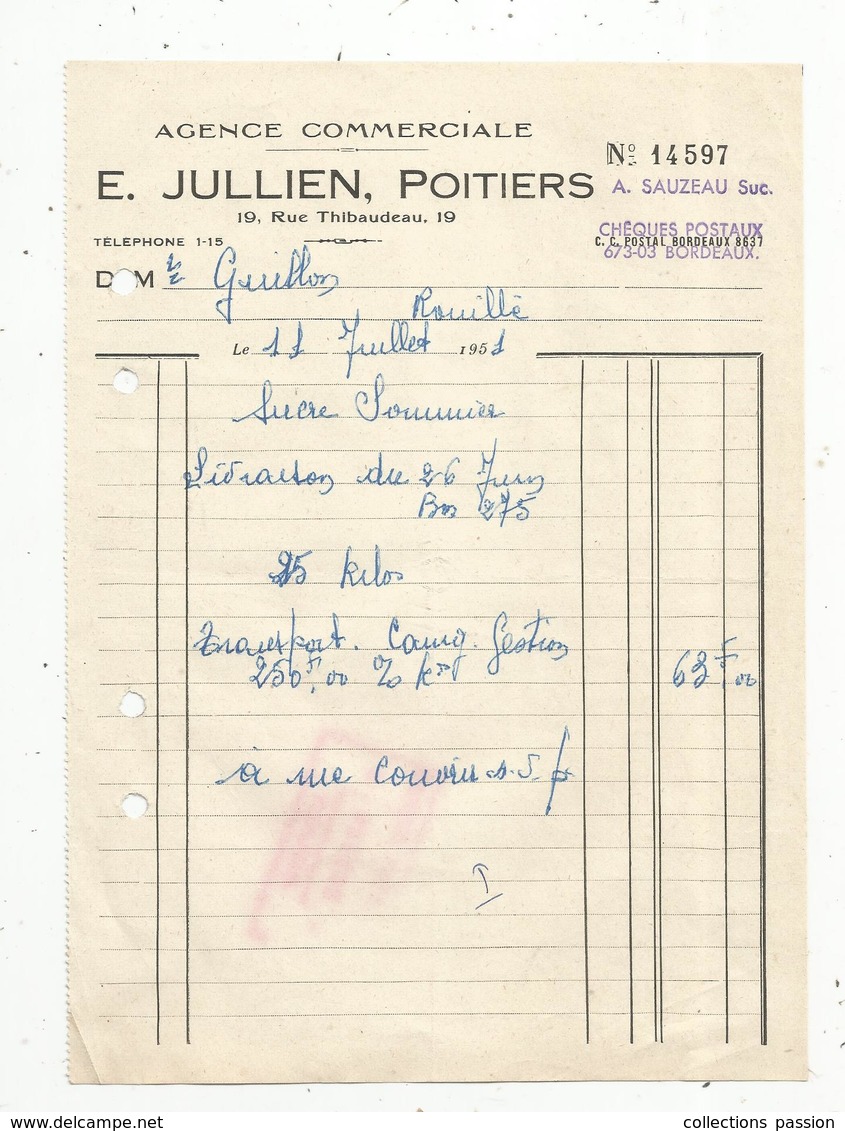 AGENCE COMMERCIALE
Nº 14597
E. JULLIEN, POITIERS
A. SAUZEAU Suc.
19, Rue Thibaudeau, 19
CHÈQUES POSTAUX
TÉLÉPHONE 1-15
C. C. POSTAL BORDEAUX 8637
673-03 BORDEAUX.
D M Guillon
Rouillé
Le 11 Juillet 1951
Sucre Sommier
Livraison du 26 Juin
Bon 275
25 kilos
Transport. Camg. Gestion
250F,00 % k 63F,00
à me couvrir s.
collections passion